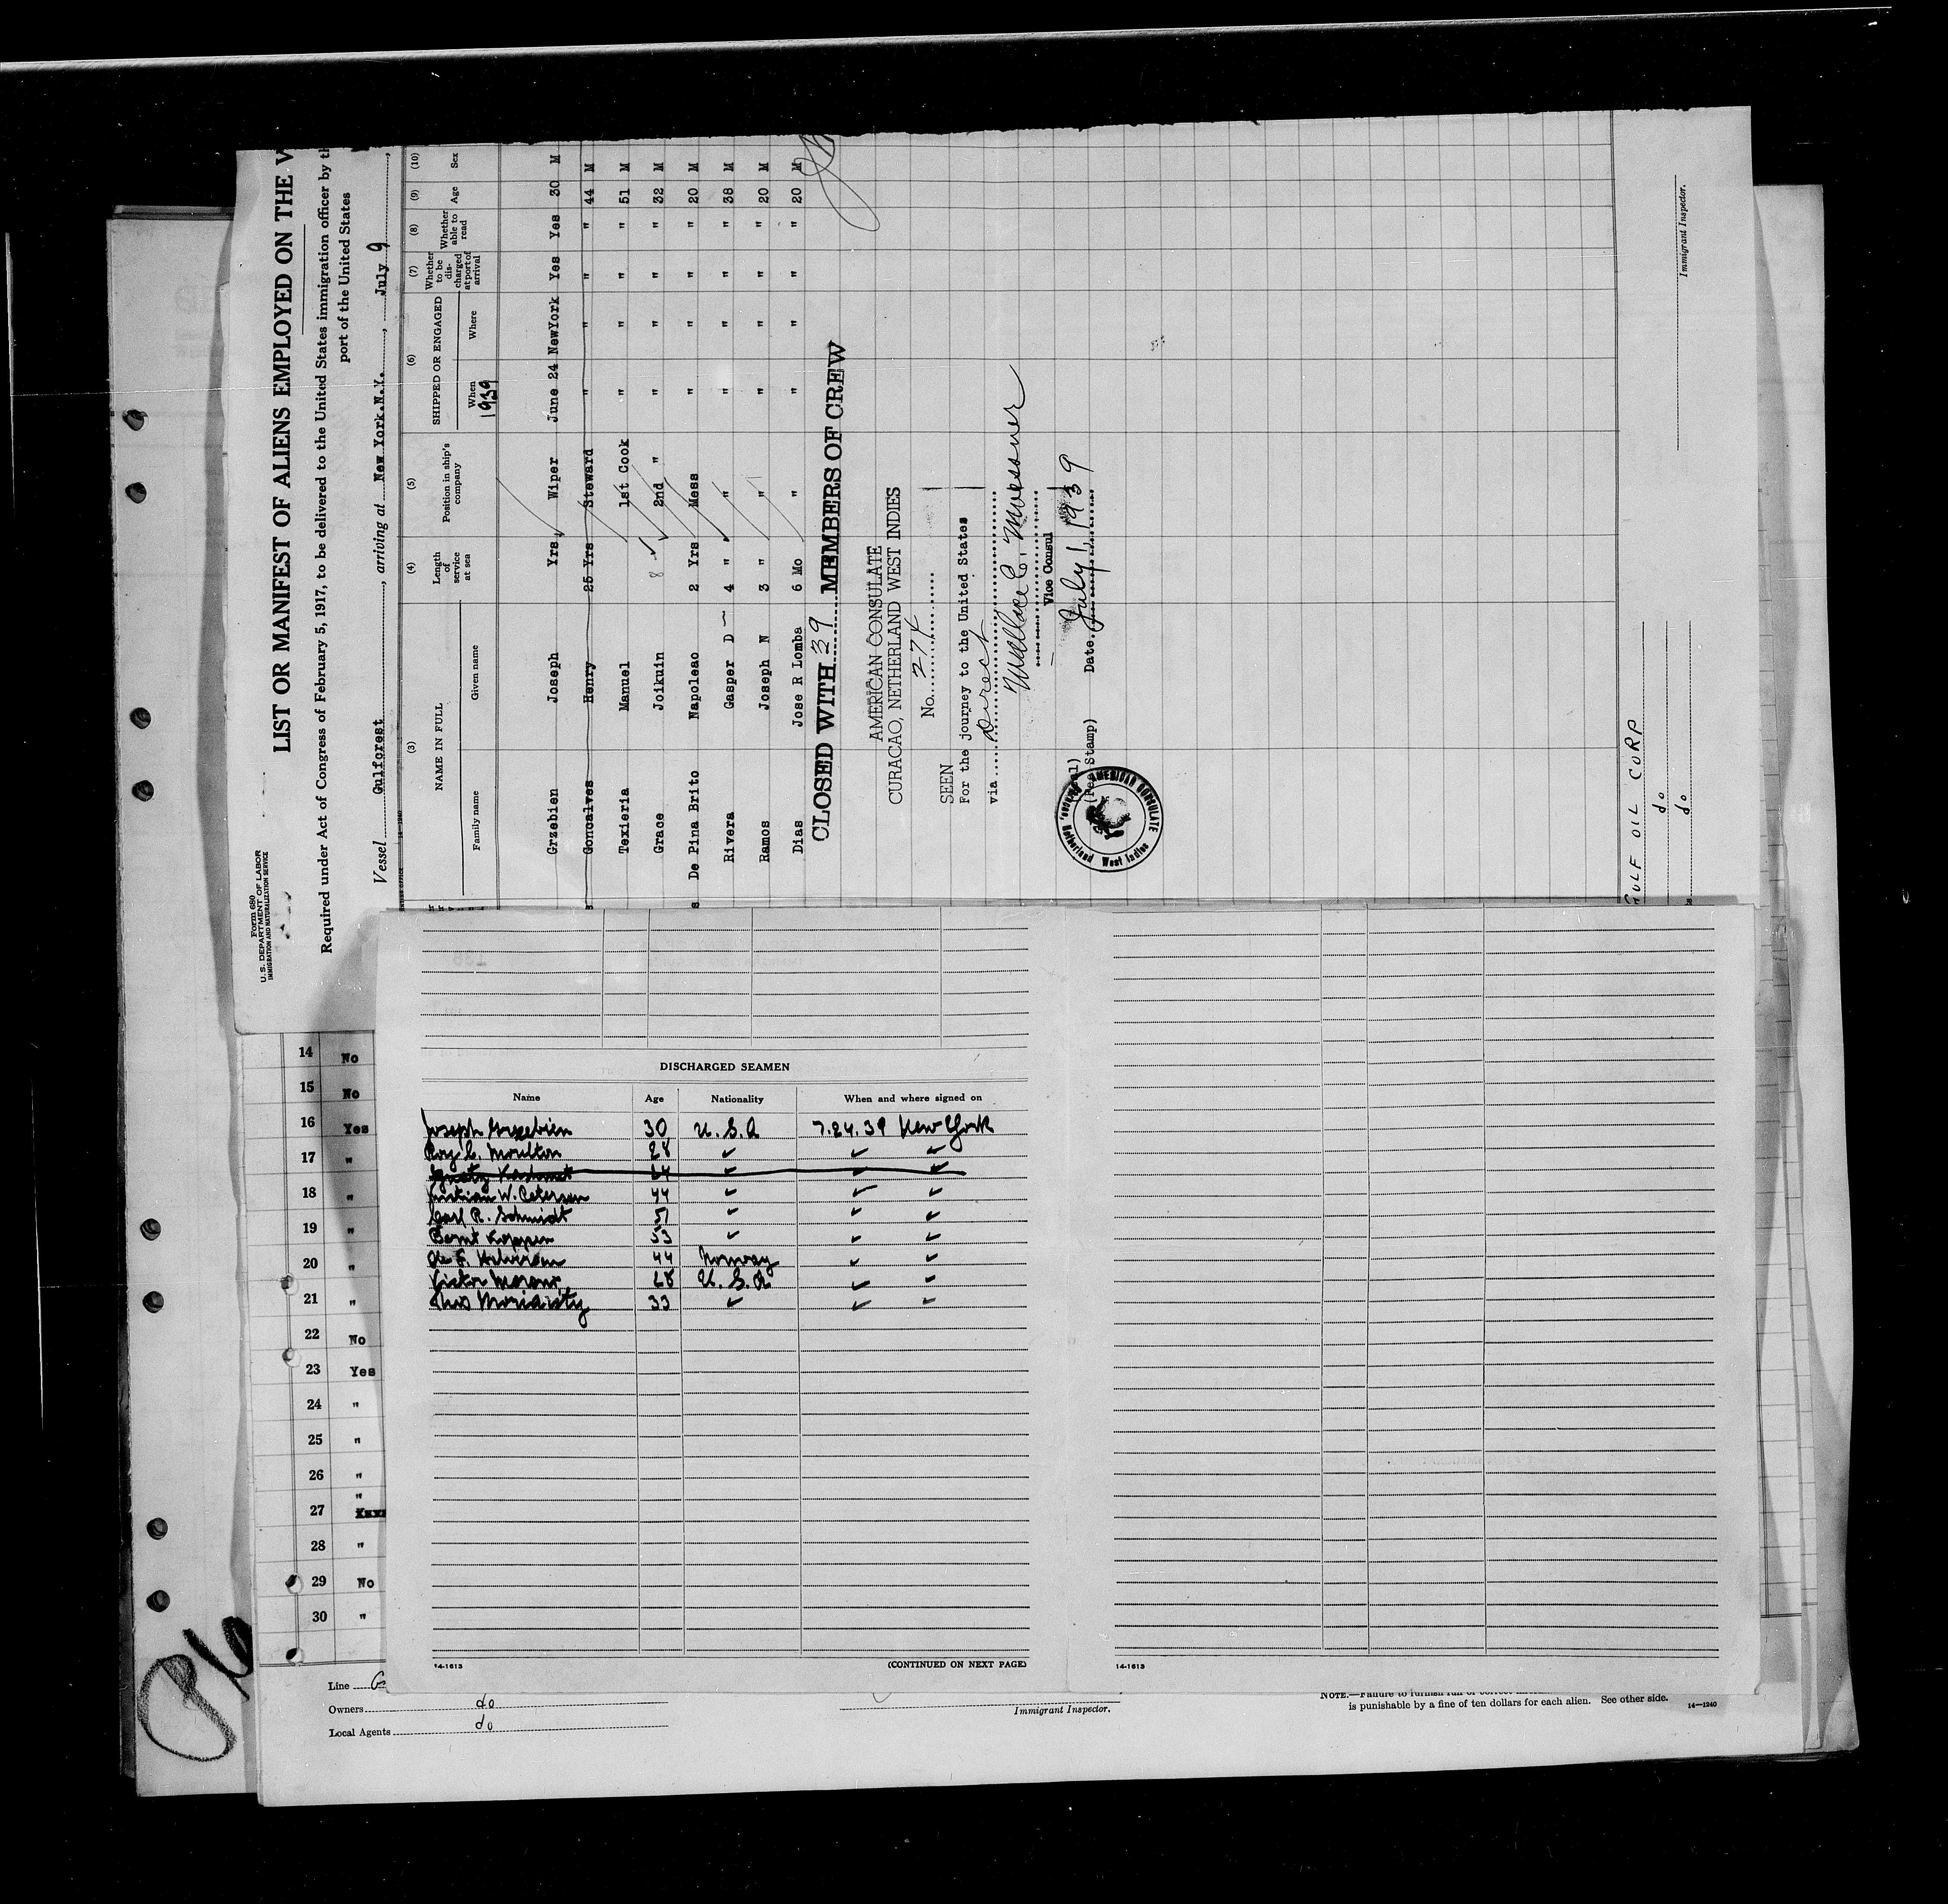 Form 680
U.S. DEPARTMENT OF LABOR
IMMIGRATION AND NATURALIZATION SERVICE
LIST OR MANIFEST OF ALIENS EMPLOYED ON THE V
Required under Act of Congress of February 5, 1917, to be delivered to the United States immigration officer by th
port of the United States
Vessel Gulforest, arriving at New York.N.Y., July 9,
(3) (4) (5) (6) (7) (8) (9) (10)
NAME IN FULL Length of service at sea Position in ship's company SHIPPED OR ENGAGED Whether to be discharged at port of arrival Whether able to read Age Sex
Family name Given name When Where
1939
Grzebien Joseph Yrs Wiper June 24 NewYork Yes Yes 30 M
Goncalves Henry 25 Yrs Steward " " " " 44 M
Texieria Manuel 1st Cook " " " " 51 M
Grace Joikuin 8 2nd " " " " " 32 M
De Pina Brito Napoleao 2 Yrs Mess " " " " 20 M
Rivera Gasper D 4 " " " " " " 38 M
Ramos Joseph N 3 " " " " " " 20 M
Dias Jose R Lomba 6 Mo " " " " " 20 M
CLOSED WITH 39 MEMBERS OF CREW
AMERICAN CONSULATE
CURACAO, NETHERLAND WEST INDIES
No. 274
SEEN
For the journey to the United States
via direct
Wallace E. Moessner
Vice Consul
(Fee Stamp) Date July 1, 1939
AMERICAN CONSULATE
Netherland West Indies
GULF OIL CORP
do
do
Immigrant Inspector.
14 No
15 No
16 Yes
17 "
18 "
19 "
20 "
21 "
22 No
23 Yes
24 "
25 "
26 "
"
27
28 "
29 No
30 "
DISCHARGED SEAMEN
Name Age Nationality When and where signed on
Joseph Grzebien 30 U.S.A 7.24.39 New York
Roy C. Moulton 28
64
Kristian W. Petersen 44
Carl R. Schmidt
Bernt Koppen 53
44 Norway
Victor Moran 68 U.S.A
Thos Moriarity 33
14-1613
(CONTINUED ON NEXT PAGE)
14-1613
Line G
Owners do
Local Agents do
Immigrant Inspector.
is punishable by a fine of ten dollars for each alien. See other side.
14—1240